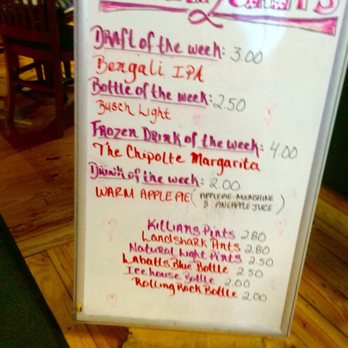 Draft of the week: 3.00
Bengali IPA
Bottle of the week: 2.50
Busch Light
Frozen Drink of the week: 4.00
The Chipolte Margarita
Drink of the week: 2.00
WARM APPLE PIE (APPLE PIE MOONSHINE
& PINEAPPLE JUICE)
Killians Pints 2.80
Landshark Pints 2.80
Natural Light Pints 2.50
Labatts Blue Bottle 2.50
Icehouse Bottle 2.00
Rolling Rock Bottle 2.00